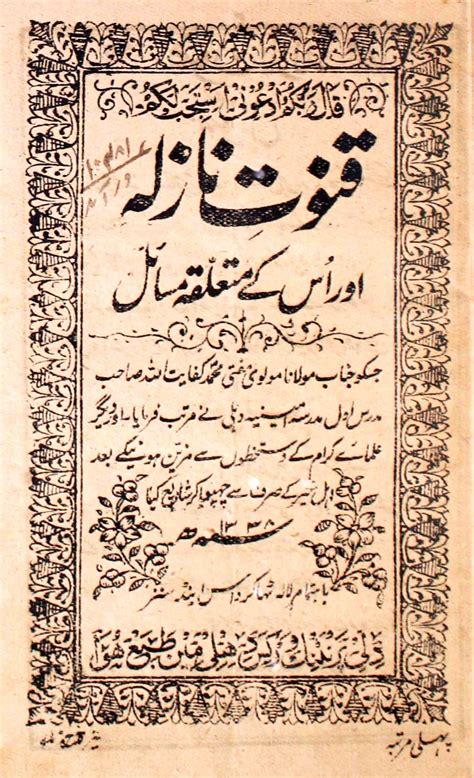 قال ربكم ادعونی استجب لکم
قنوتِ نازلہ
اور اُس کے متعلقہ مسائل
جسکو جناب مولانا مولوی مفتی محمد کفایت اللہ صاحب
مدرس اول مدرسہ امینیہ دہلی نے مرتب فرمایا اور دیگر
علمائے کرام کے دستخطوں سے مزیّن ہونیکے بعد
اہل خیر کے صرف سے چھپوا کر شایع کیا
سنہ ۱۳۳۸ ھ
باہتمام لالہ ٹھاکر داس اینڈ سنز
دلی پرنٹنگ ورکس دہلی میں طبع ہوا
پہلی مرتبہ